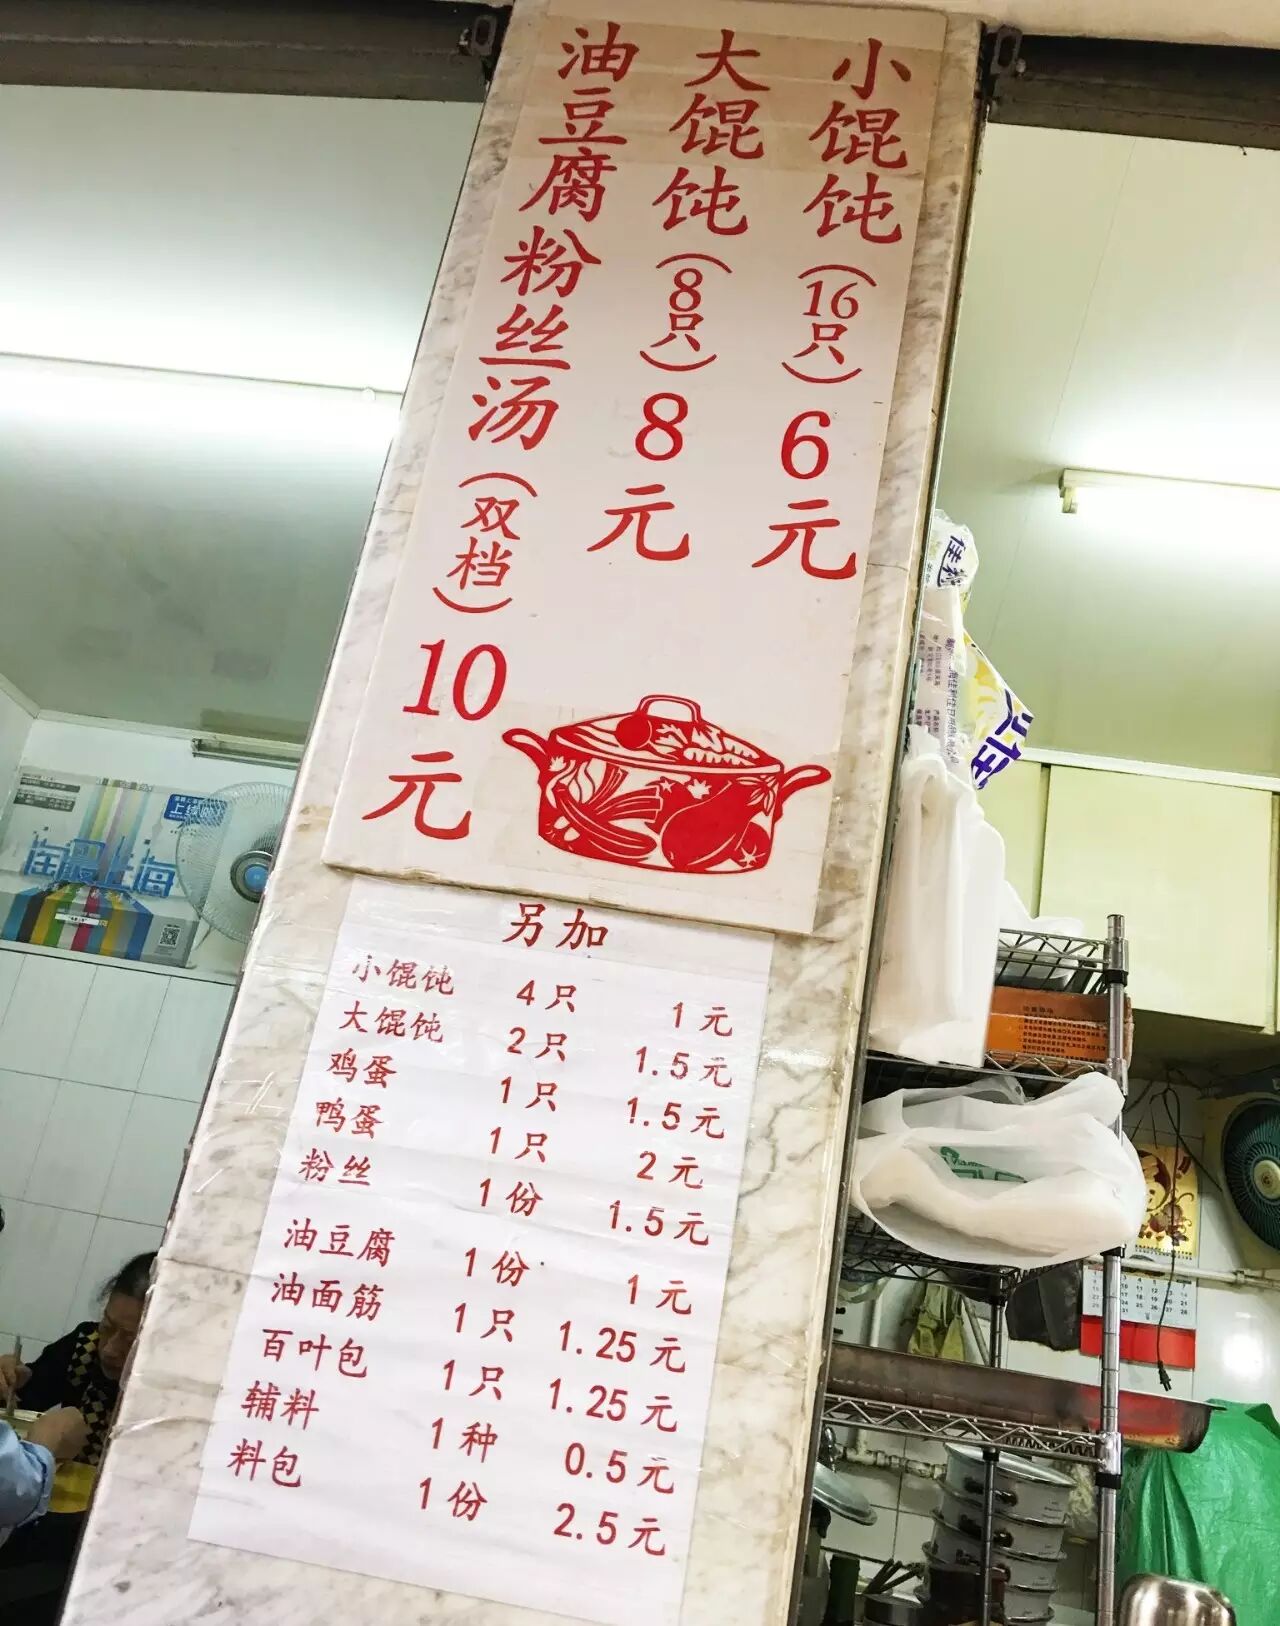 小馄饨(16只)6元
大馄饨(8只)8元
油豆腐粉丝汤(双档)10元
另加
小馄饨 4只 1元
大馄饨 2只 1.5元
鸡蛋 1只 1.5元
鸭蛋 1只 2元
粉丝 1份 1.5元
油豆腐 1份 1元
油面筋 1只 1.25元
百叶包 1只 1.25元
辅料 1种 0.5元
料包 1份 2.5元
上海